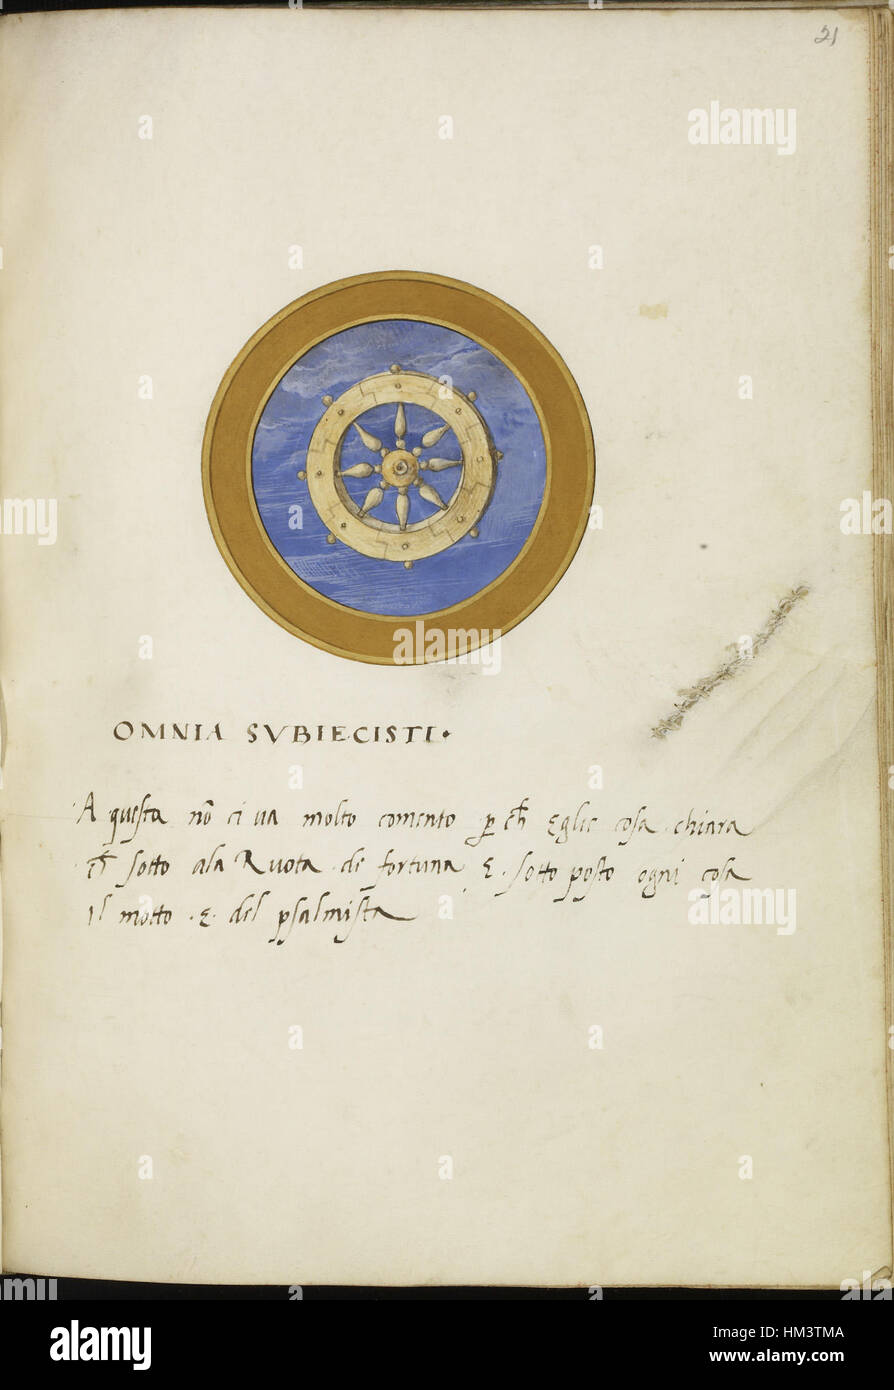 21
OMNIA SVBIECISTI·
A questa nō ci ua molto comento p ch̄ Eglie cosa chiara
ch̄ sotto ala Ruota de fortuna E sotto posto ogni cosa
Il motto · E · del psalmista
alamy
Image ID: HM3TMA
www.alamy.com